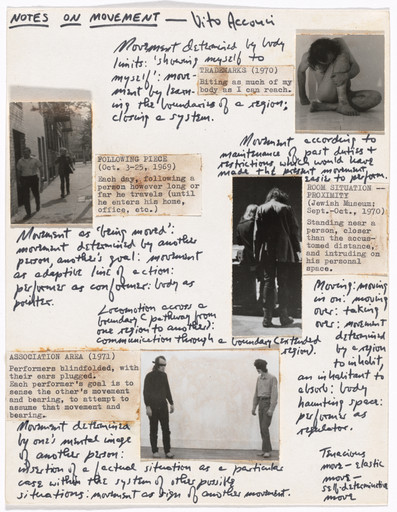 NOTES ON MOVEMENT — Vito Acconci
Movement determined by body
limits: 'showing myself to
myself': move-
ment by learn-
ing the boundaries of a region;
closing a system.
TRADEMARKS (1970)
Biting as much of my
body as I can reach.
FOLLOWING PIECE
(Oct. 3-25, 1969)
Each day, following a
person however long or
far he travels (until
he enters his home,
office, etc.)
Movement according to
maintenance of past duties &
restrictions, which would have
made the present movement
easier to perform.
ROOM SITUATION —
PROXIMITY
(Jewish Museum;
Sept.-Oct., 1970)
Standing near a
person, closer
than the accus-
tomed distance,
and intruding on
his personal
space.
Movement as 'being moved':
movement determined by another
person, another's goal: movement
as adaptive line of action:
performer as conformer: body as
pointer.
Locomotion across a
boundary (pathway from
one region to another):
communication through a boundary (extended
region).
Moving: moving
in on: moving
over: taking
over: movement
determined
by a region
to inhabit,
an inhabitant to
absorb: body
haunting space:
performer as
regulator.
ASSOCIATION AREA (1971)
Performers blindfolded, with
their ears plugged.
Each performer's goal is to
sense the other's movement
and bearing, to attempt to
assume that movement and
bearing.
Movement determined
by one's mental image
of another person:
insertion of a factual situation as a particular
case within the system of other possible
situations: movement as sign of another movement.
Tenacious
move — elastic
move —
self-deterministic
move